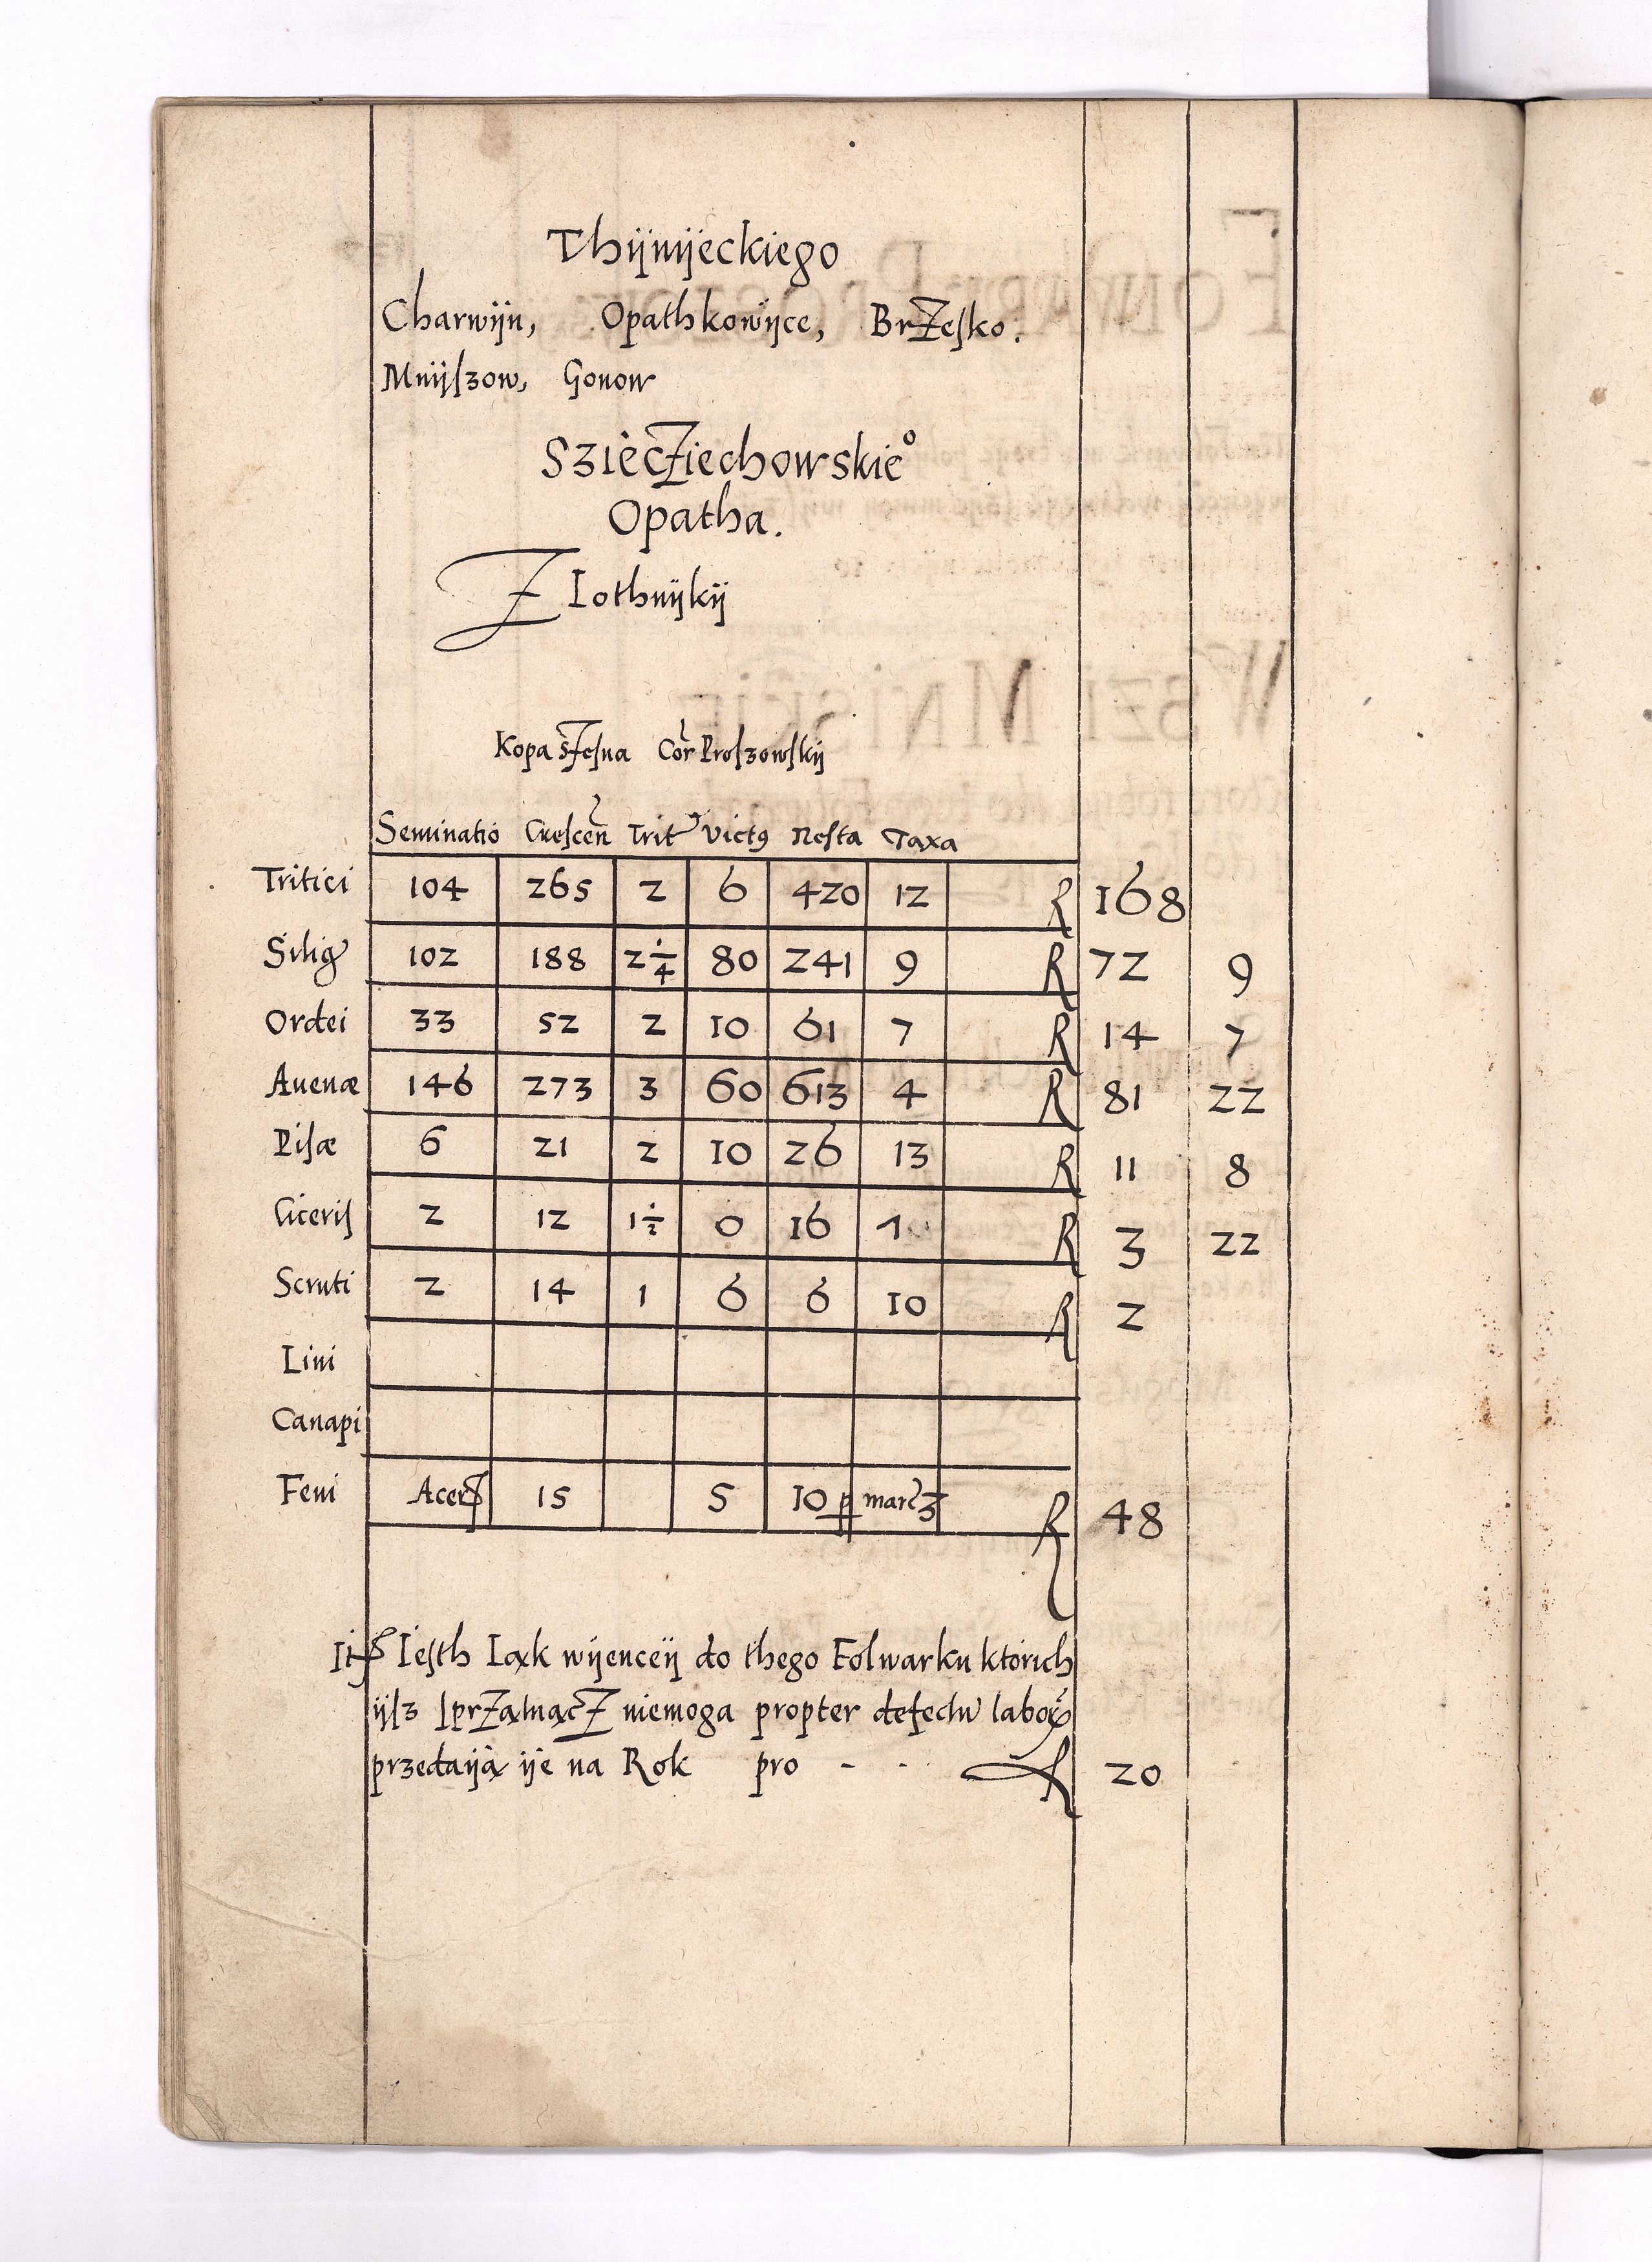 Thÿnÿeckiego
Charwÿn, Opathkowÿce, BrZesko.
Mnÿſzow, Gonow
SzièćZiechowskie°
Opatha.
Z Iothnÿkÿ
Kopa Cor Proſzowſkÿ
Seminatio Creſcen Trit Victꝯ Reſta Taxa
Tritici 104 265 2 6 420 12 R 168
Silig 102 188 2 1/4 80 241 9 R 72 9
Ordei 33 52 2 10 61 7 R 14 7
Auenæ 146 273 3 60 613 4 R 81 22
Piſæ 6 21 2 10 26 13 R 11 8
Ciceriſ 2 12 1 1/2 0 16 7 R 3 22
Scruti 2 14 1 6 6 10 R 2
Lini
Canapi
Feni Acer 15 5 10 p marc 3 R 48
It Ieſth Iąk wÿenceÿ do thego Folwarku ktorich
ÿſz ſprZątnącZ niemoga propter defectu labor
przedaÿą ÿe na Rok pro - - R 20